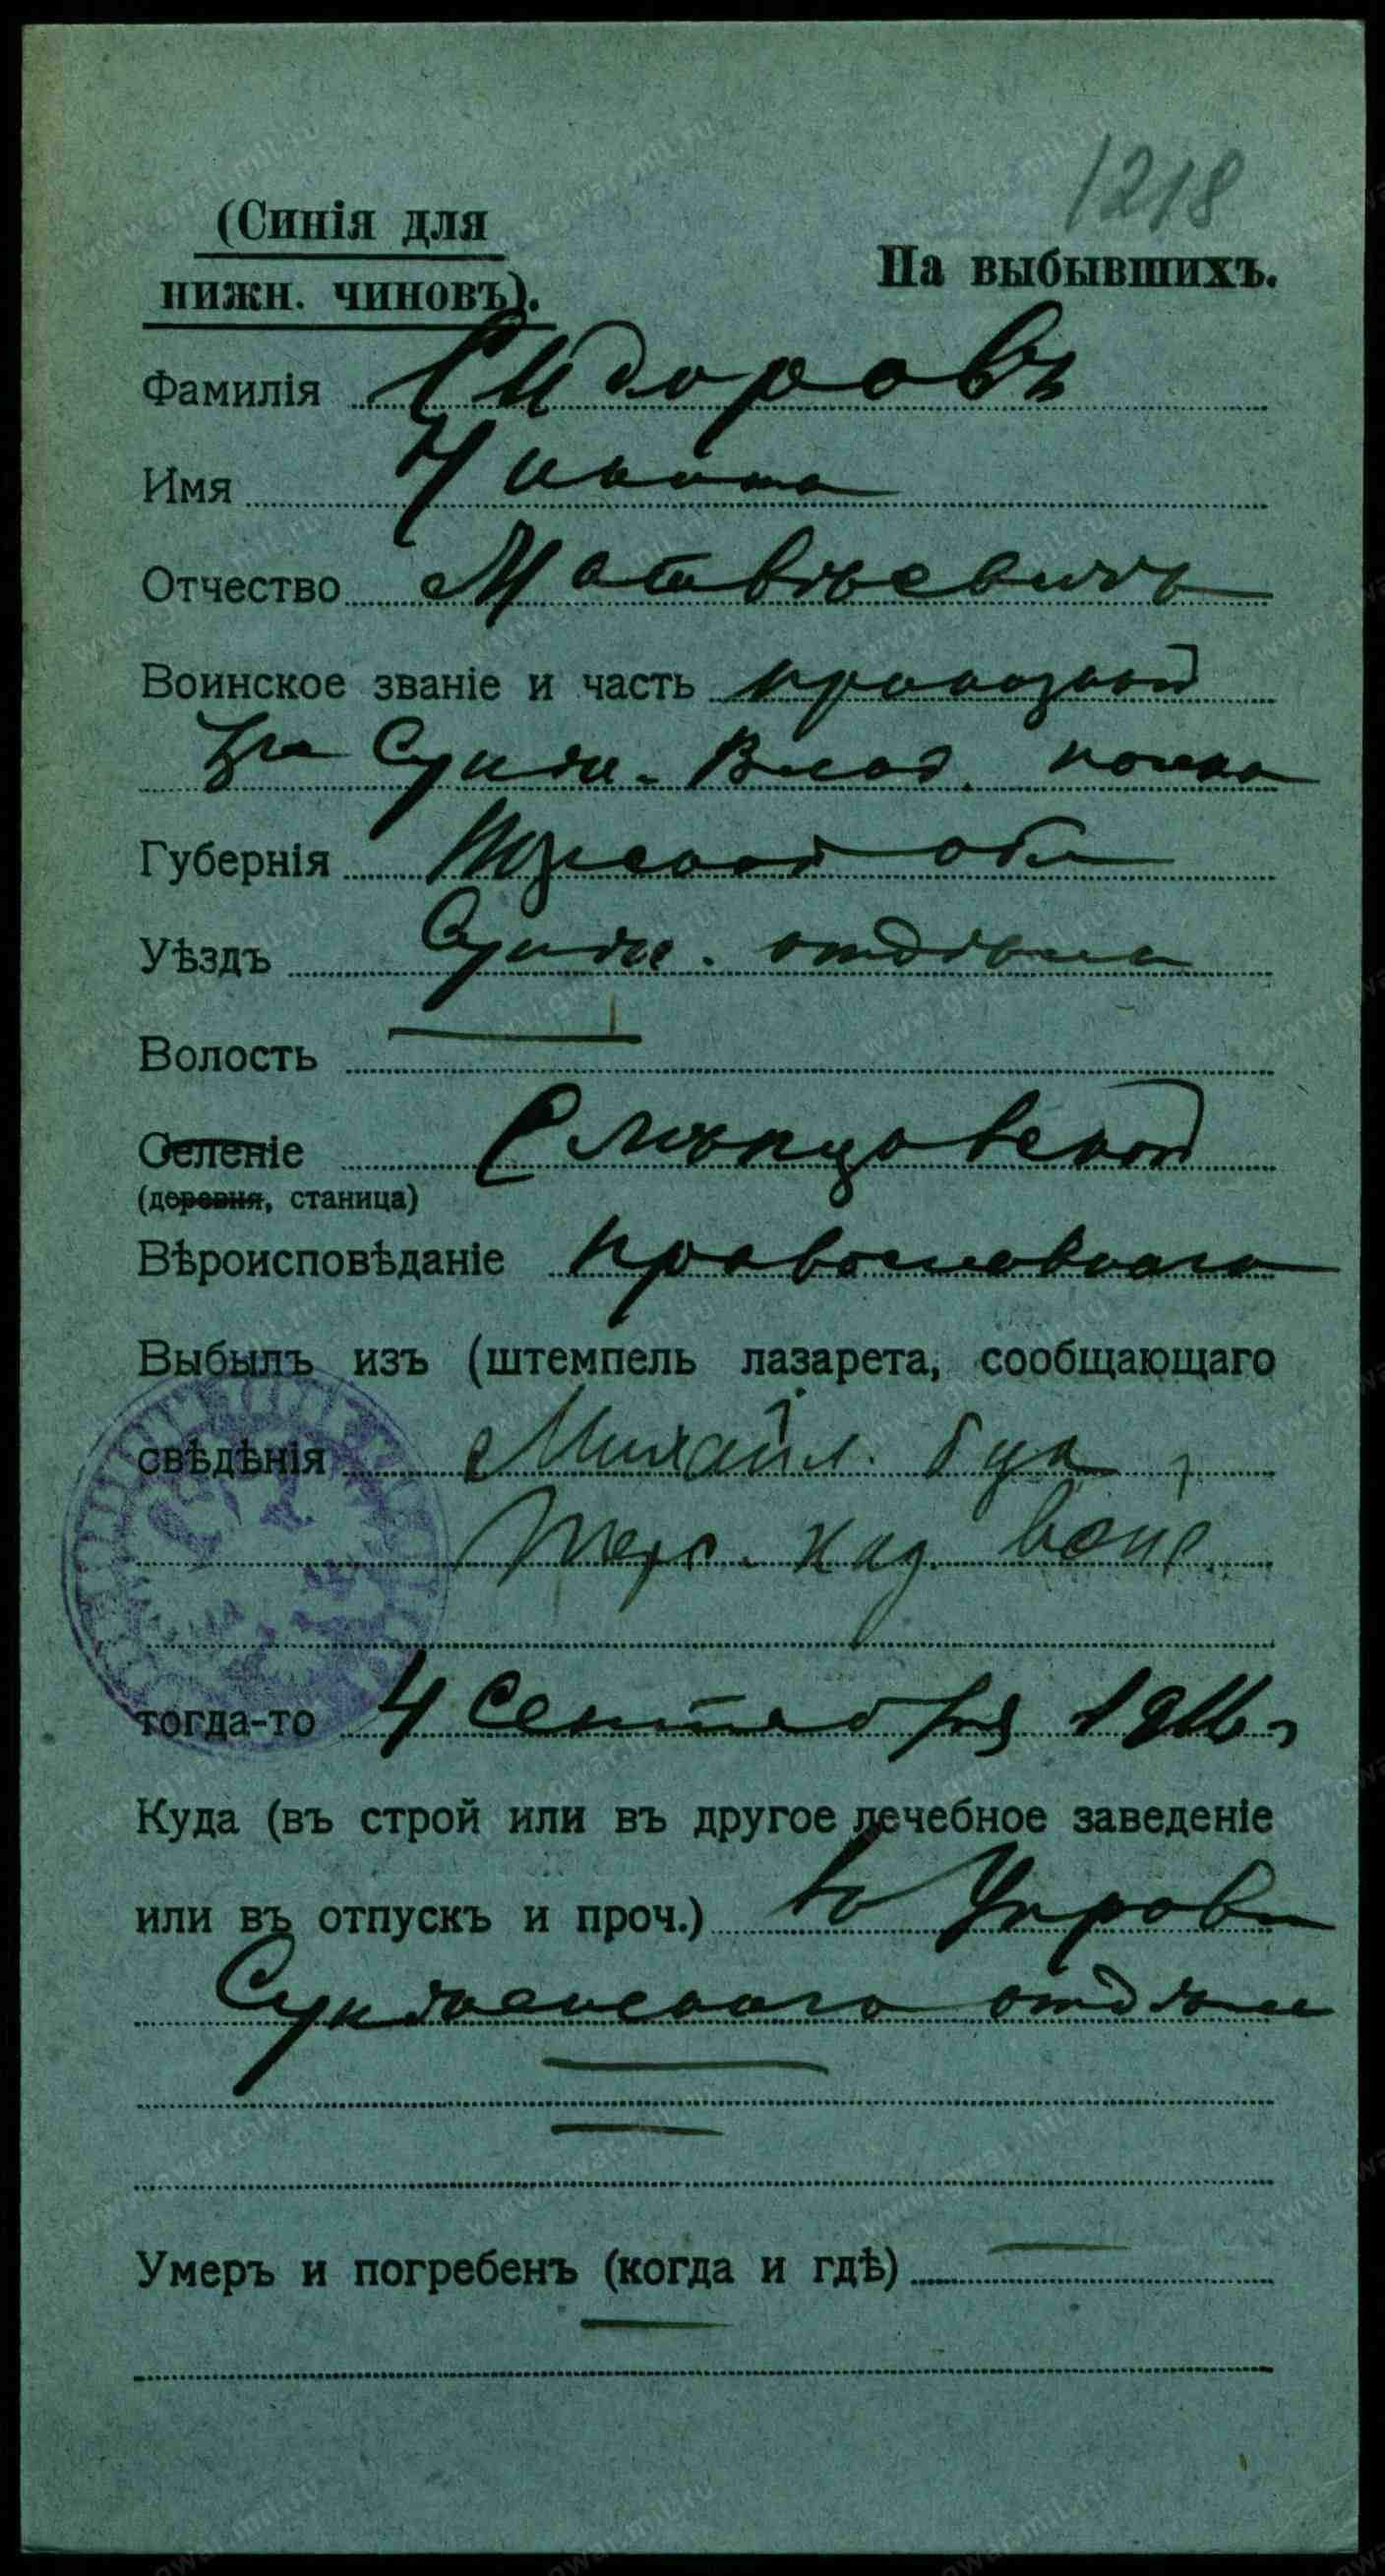 1218
(Синія для
нижн. чиновъ).
На выбывшихъ.
Фамилія Сидоровъ
Имя Никита
Отчество Матвѣевичъ
Воинское званіе и часть приказный
3го Сунж. Влад. полка
Губернія Терской обл
Уѣздъ Сунж. отдѣла
Волость
Селеніе Слѣпцовской
(деревня, станица)
Вѣроисповѣданіе православнаго
Выбылъ изъ (штемпель лазарета, сообщающаго
свѣдѣнія Михайл.
Терс. каз. войс.
тогда-то 4 Сентября 1916 г
Куда (въ строй или въ другое лечебное заведеніе
или въ отпускъ и проч.) въ Управ
Сунженскаго отдѣла
Умеръ и погребенъ (когда и гдѣ)